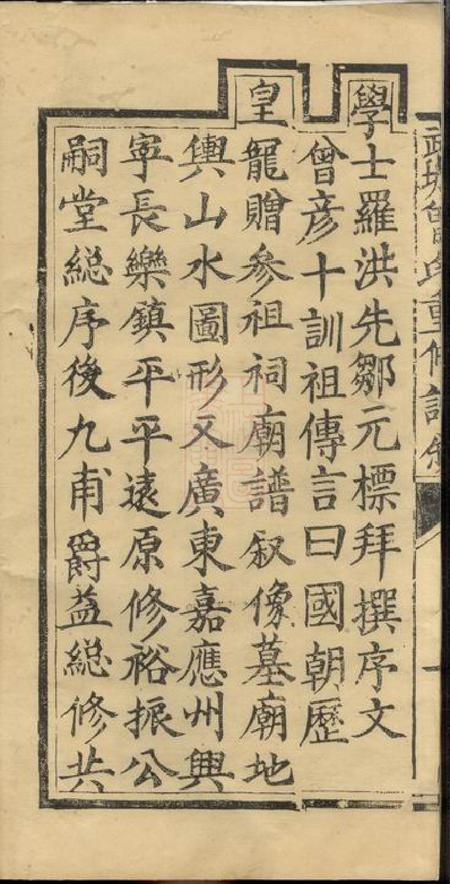 學士羅洪先鄒元標拜撰序文
曾彦十訓祖傳言曰國朝歷
皇寵贈參祖祠廟譜叙像墓廟地
輿山水圖形又廣東嘉應州興
寧長樂鎮平平遠原修裕振公
嗣堂總序後九甫爵益總修共
武城曾氏重修